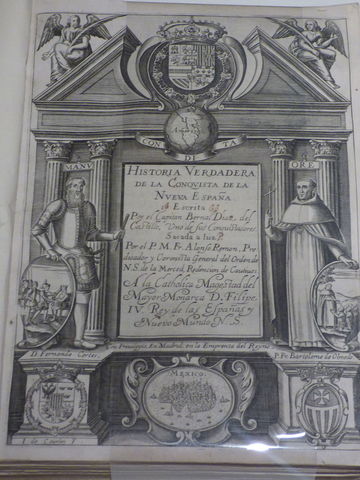 CON TA
DE
MANV ORE
HISTORIA VERDADERA
DE LA CONQVISTA DE LA
NVEVA ESPAÑA
Escrita
Por el Capitan Bernal Diaz, del
Castillo, Vno de sus Conquistadores.
Sacada a luz,
Por el P. M. Fr. Alonso Remon, Pre
dicador y Coronista General del Orden de
N. S. de la Merced, Redencion de Cautiuos.
A la Catholica Magestad del
Mayor Monarca D. Filipe
IV. Rey de las Españas y
Nuevo Mundo. N. S.
Con Privilegio. En Madrid, en la Emprenta del Reyno
D. Fernando Cortes.
P. Fr. Bartolome de Olmedo
MEXICO.
I. de Courbes F.